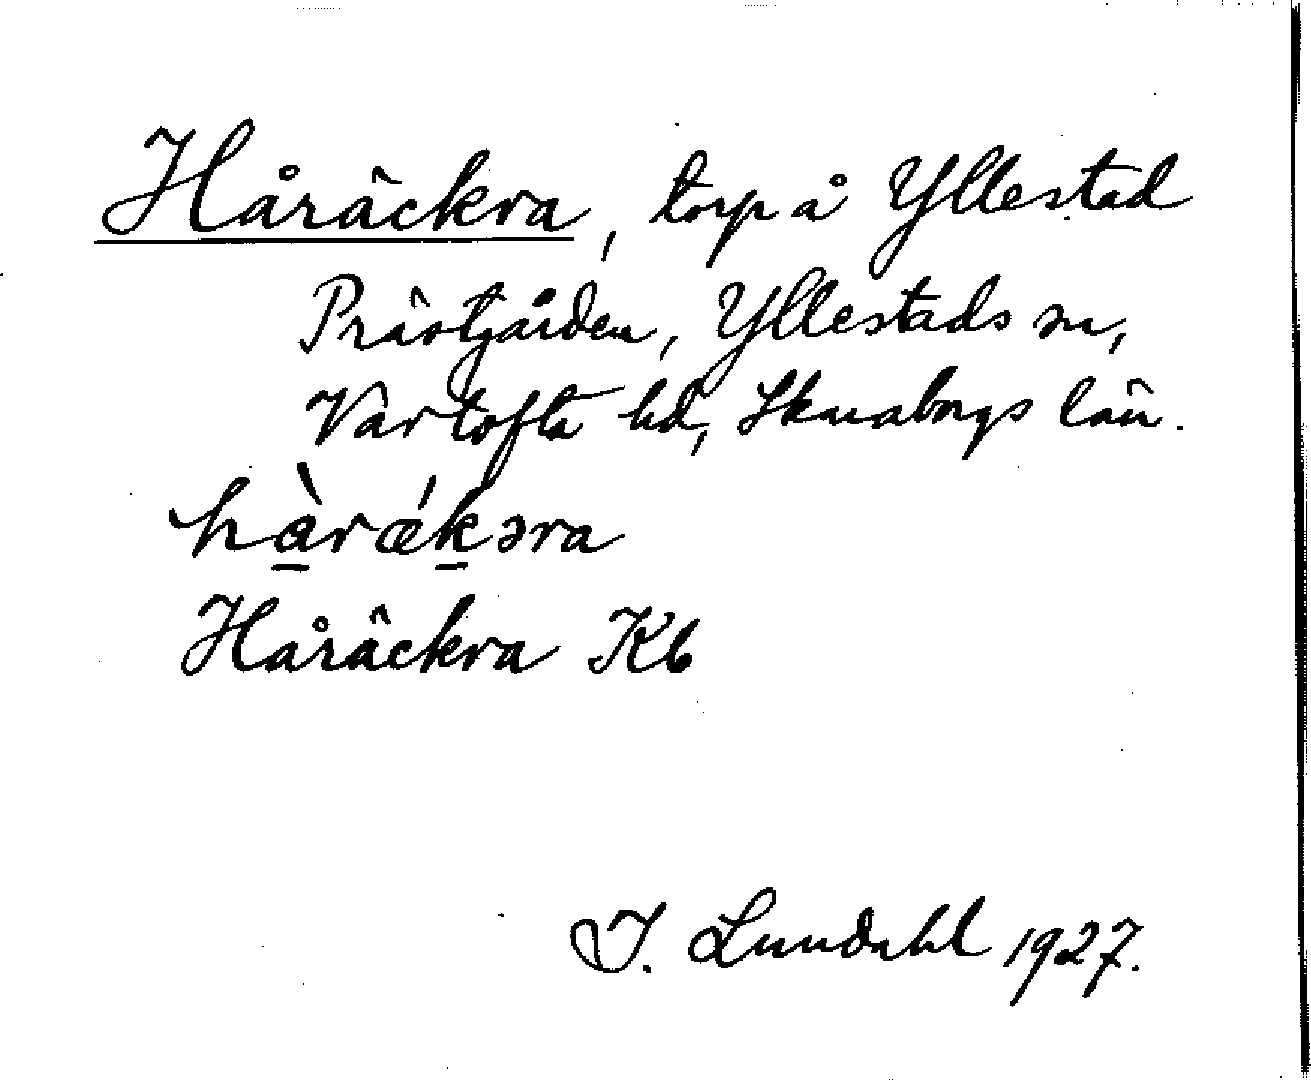 Håräckra, torp å Yllestad
Prästgården, Yllestads sn,
Vartofta hd, Skaraborgs län.
hà̱rǽḵəra
Håräckra Kb
I. Lundahl 1927.